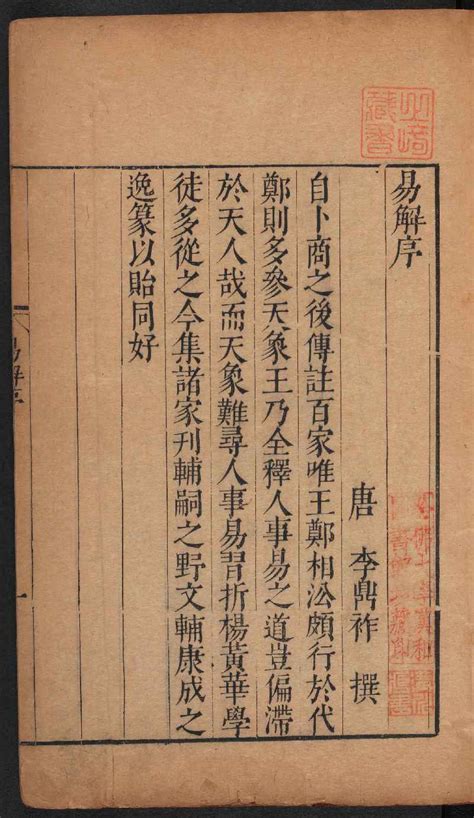 易解序
唐 李鼎祚 撰
自卜商之後傳註百家唯王鄭相㳂頗行於代
鄭則多參天象王乃全釋人事易之道豈偏滯
於天人哉而天象難尋人事易習折楊黃華學
徒多從之今集諸家刊輔嗣之野文輔康成之
逸篆以貽同好
易解序
一
藏書